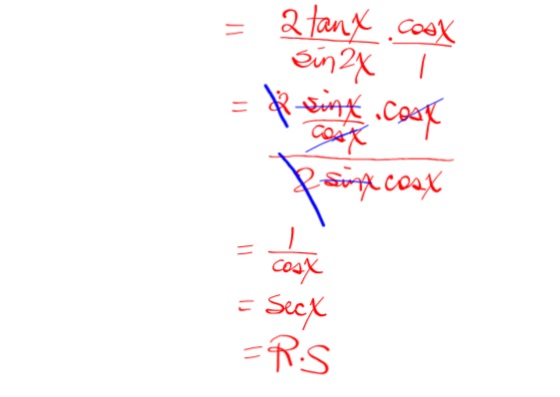 = 2tanx/sin2x · cosx/1
= 2 sinx/cosx · cosx / 2 sinx cosx
= 1/cosx
= secx
= R.S